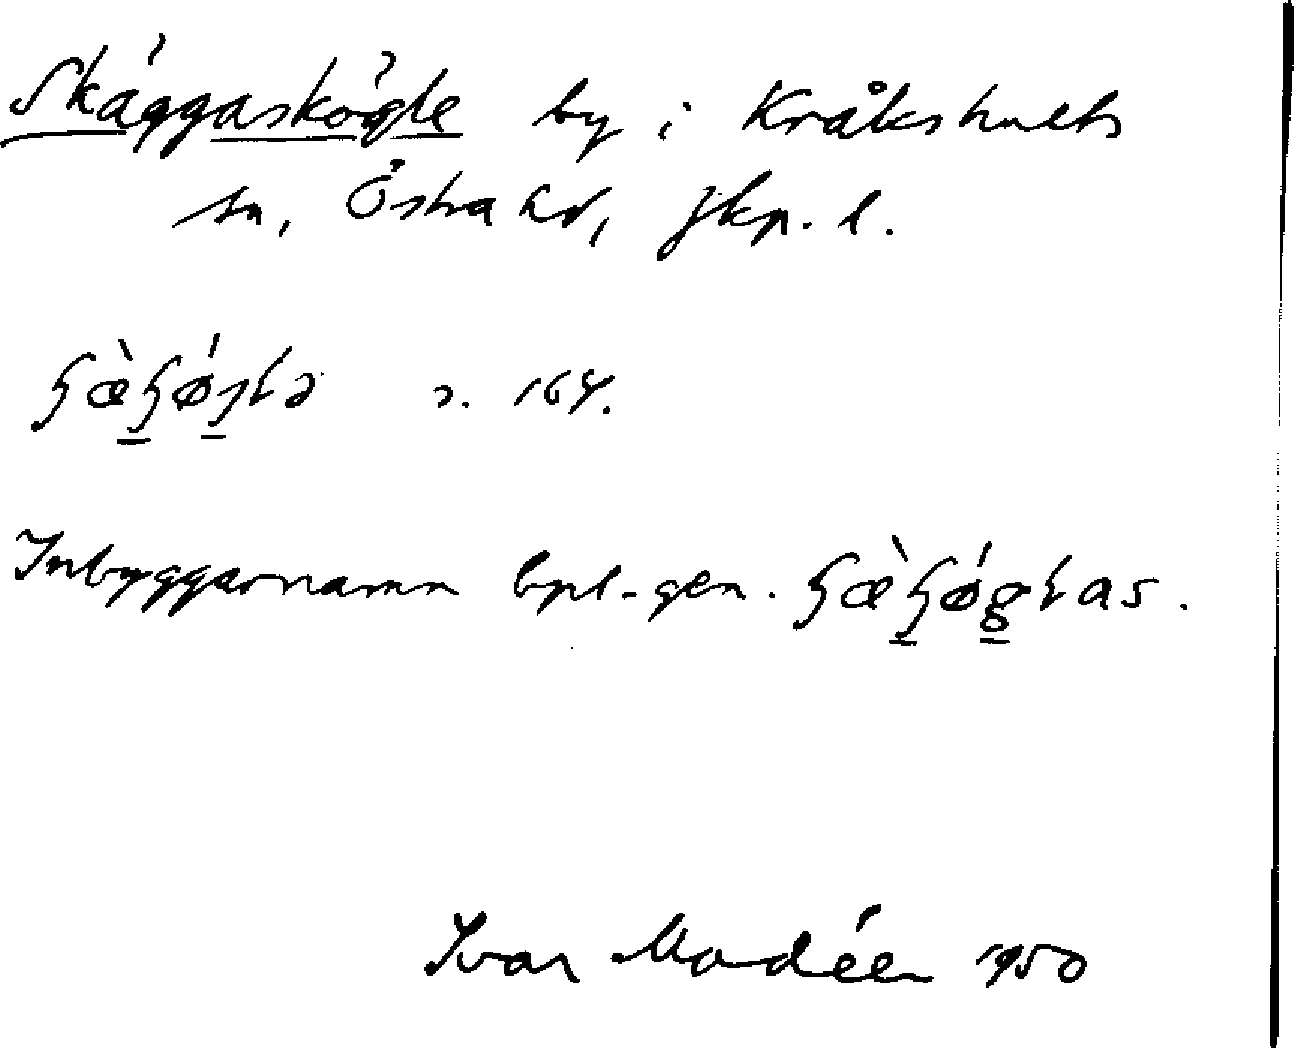 Skäggaskögle by i Kråkshults
sn, Östra hd, Jkp. l.
s. 164.
Inbyggarnamn bpl-gen.
Ivar Modéer 1950